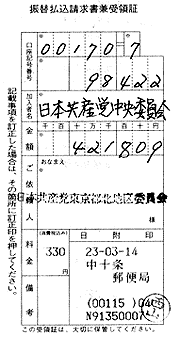 振替払込請求書兼受領証
口座記号番号
00170=7
98422
加入者名
日本共産党中央委員会
金額
千百十万千百十円
421809
ご依頼人
おなまえ
日本共産党東京都北地区委員会
様
料金
(消費税込み)
330 円
日附印
23-03-14
中十条
郵便局
備考
(00115)
N9135000
この受領証は、大切に保管してください。
記載事項を訂正した場合は、その箇所に訂正印を押してください。